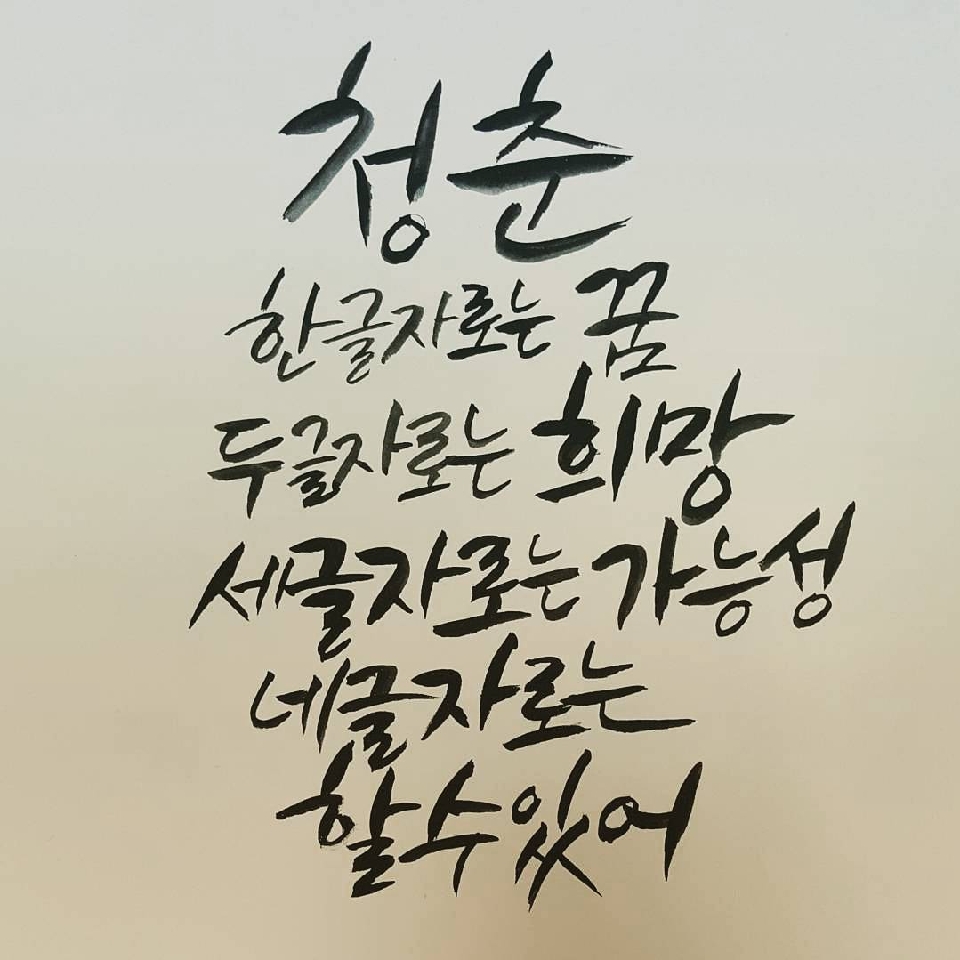 청춘
한글자로는 꿈
두글자로는 희망
세글자로는 가능성
네글자로는
할수있어